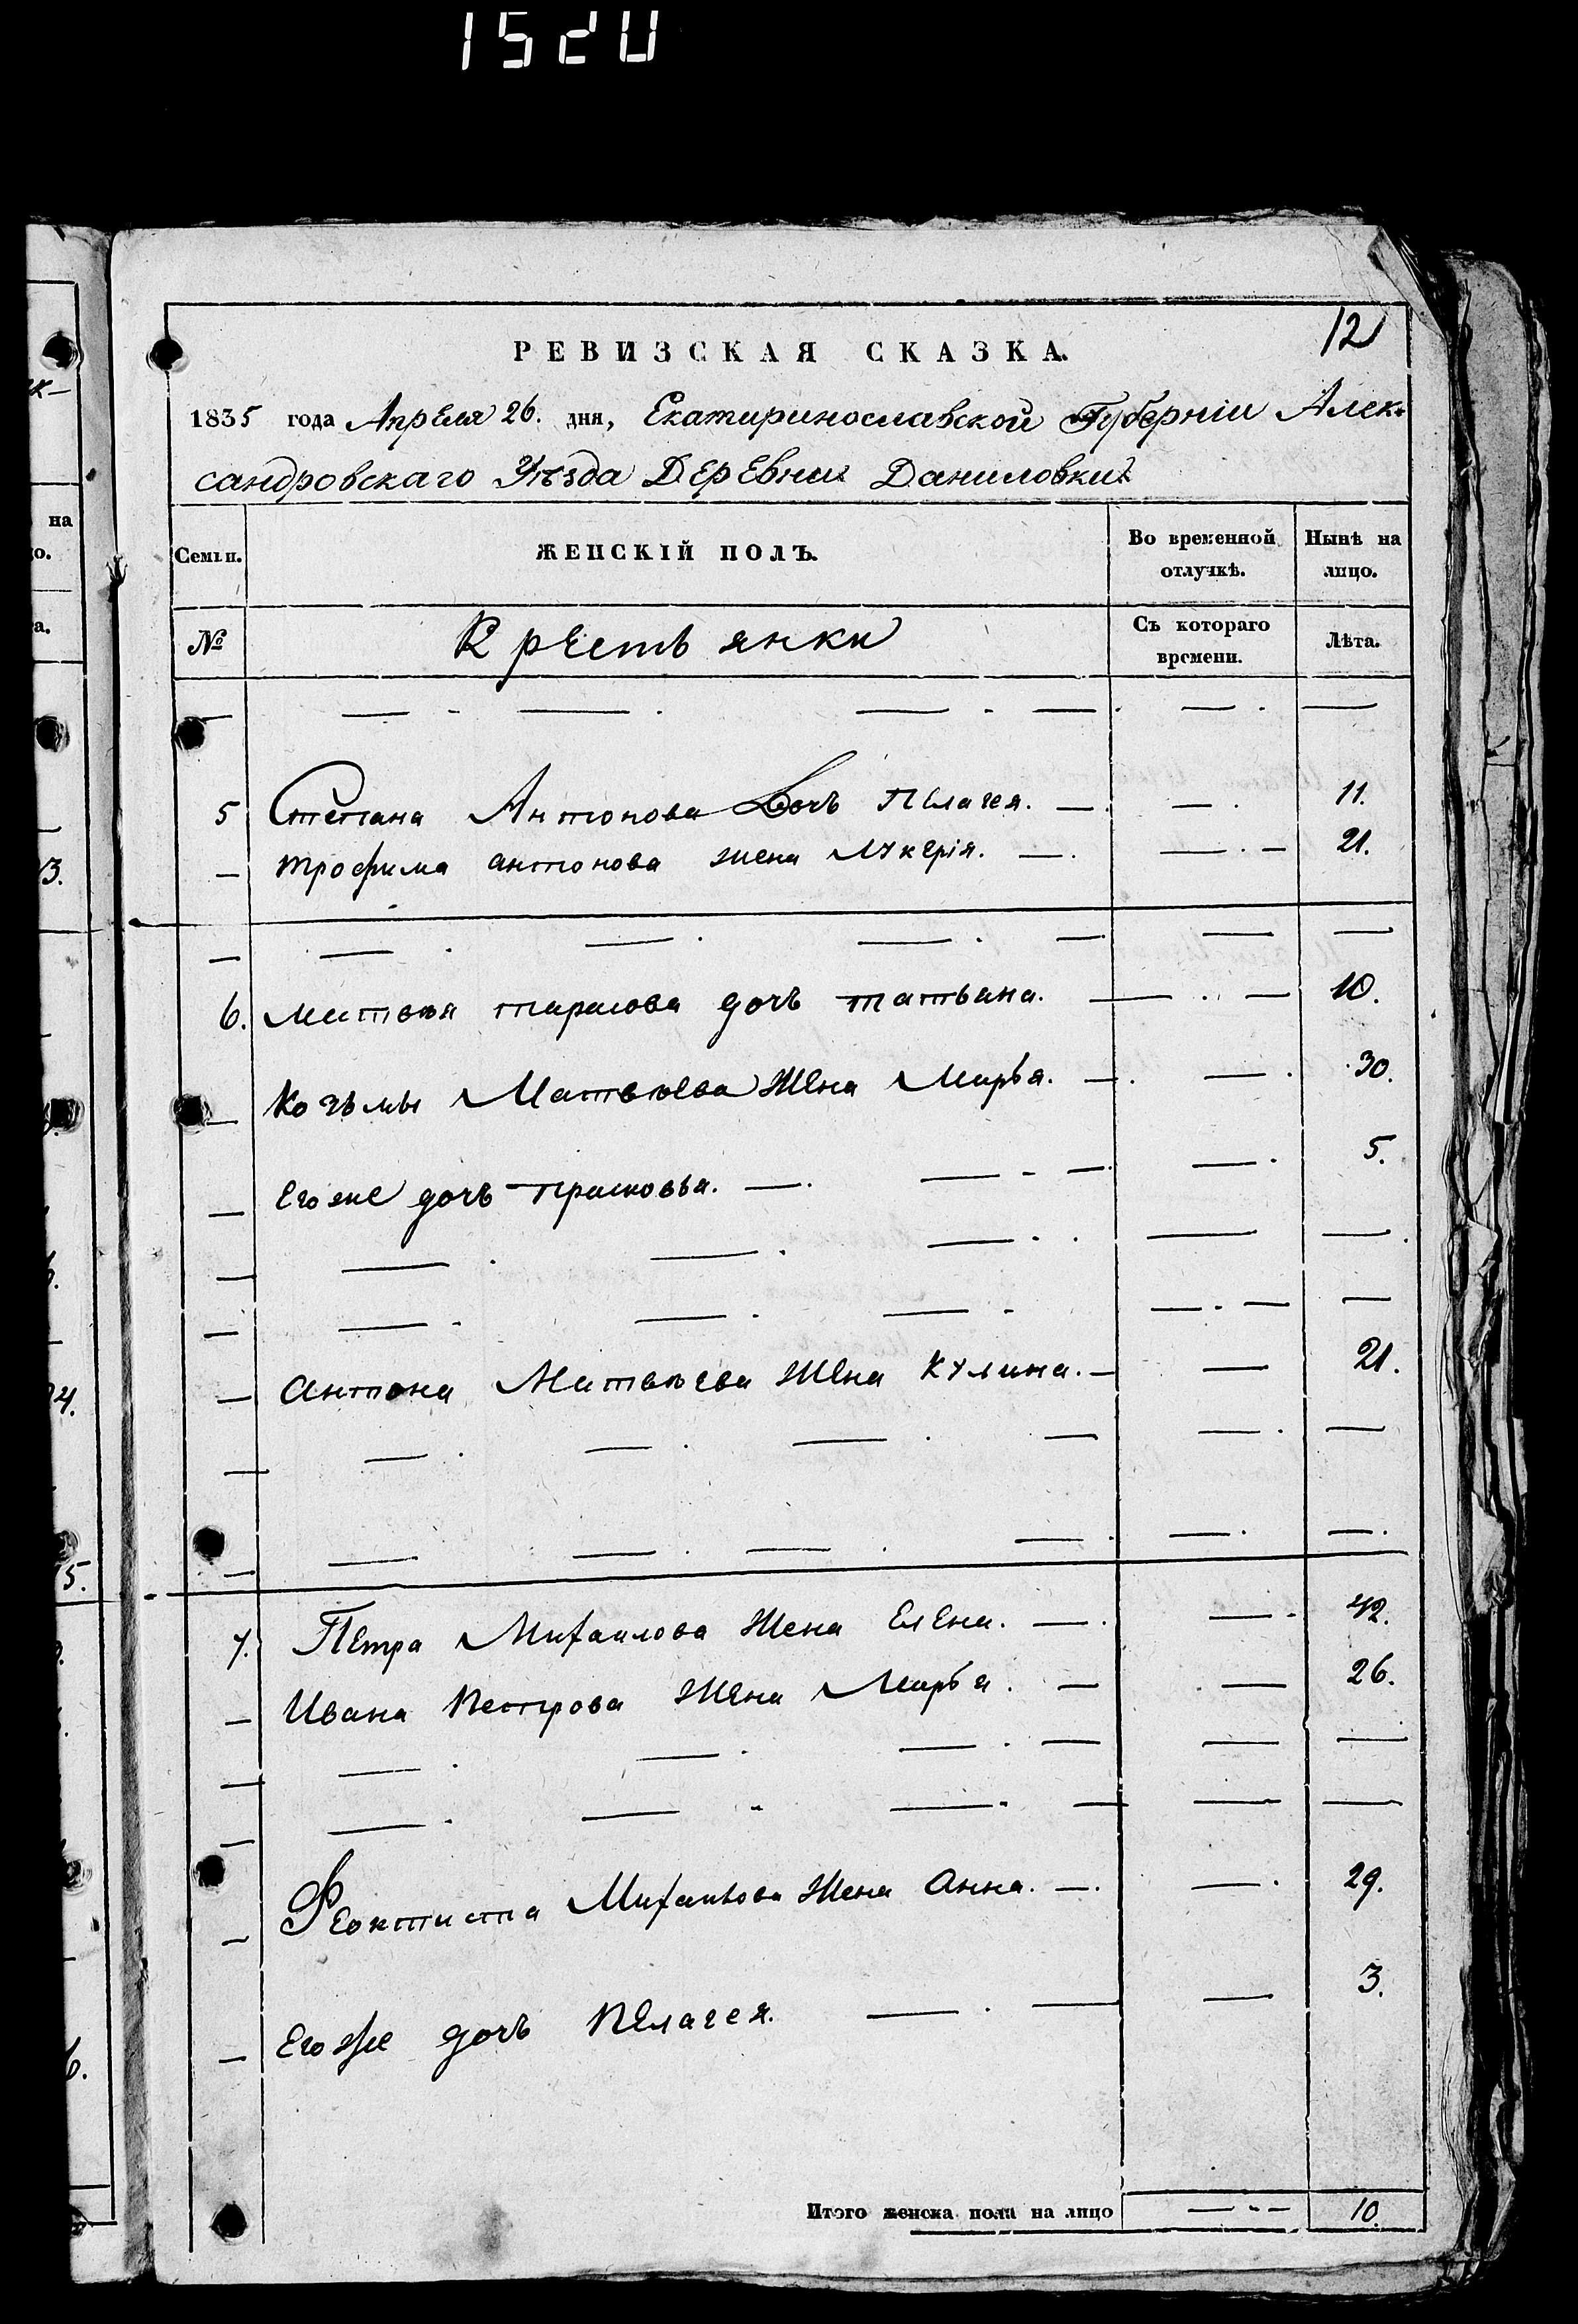 1520
12
РЕВИЗСКАЯ СКАЗКА.
1835 года Апреля 26. дня, Екатиринославской Губерніи Алек-
сандровскаго Уѣзда Деревни Даниловки
Семьи. ЖЕНСКІЙ ПОЛЪ. Во временной отлучкѣ. Нынѣ на лицо.
№ Крестьянки Съ котораго времени. Лѣта.
5 Степана Антонова Дочь Пелагея. — — 11.
— трофима антонова жена Лукерія. — — 21.
6. матвѣя тарасова дочь татьана. — — 10.
— Козьмы Матвѣева жена Марья. — — 30.
— Егоже дочь прасковья. — — 5.
— антона Матвѣева жена Кулина. — — 21.
7. Петра Михаилова жена Елена. — — 42.
— Ивана Петрова жена Марья. — — 26.
— Феоктиста Михаилова жена Анна. — — 29.
— Егоже дочь Пелагея. — — 3.
Итого женска пола на лицо — 10.
на
о.
а.
3.
4.
5.
6.